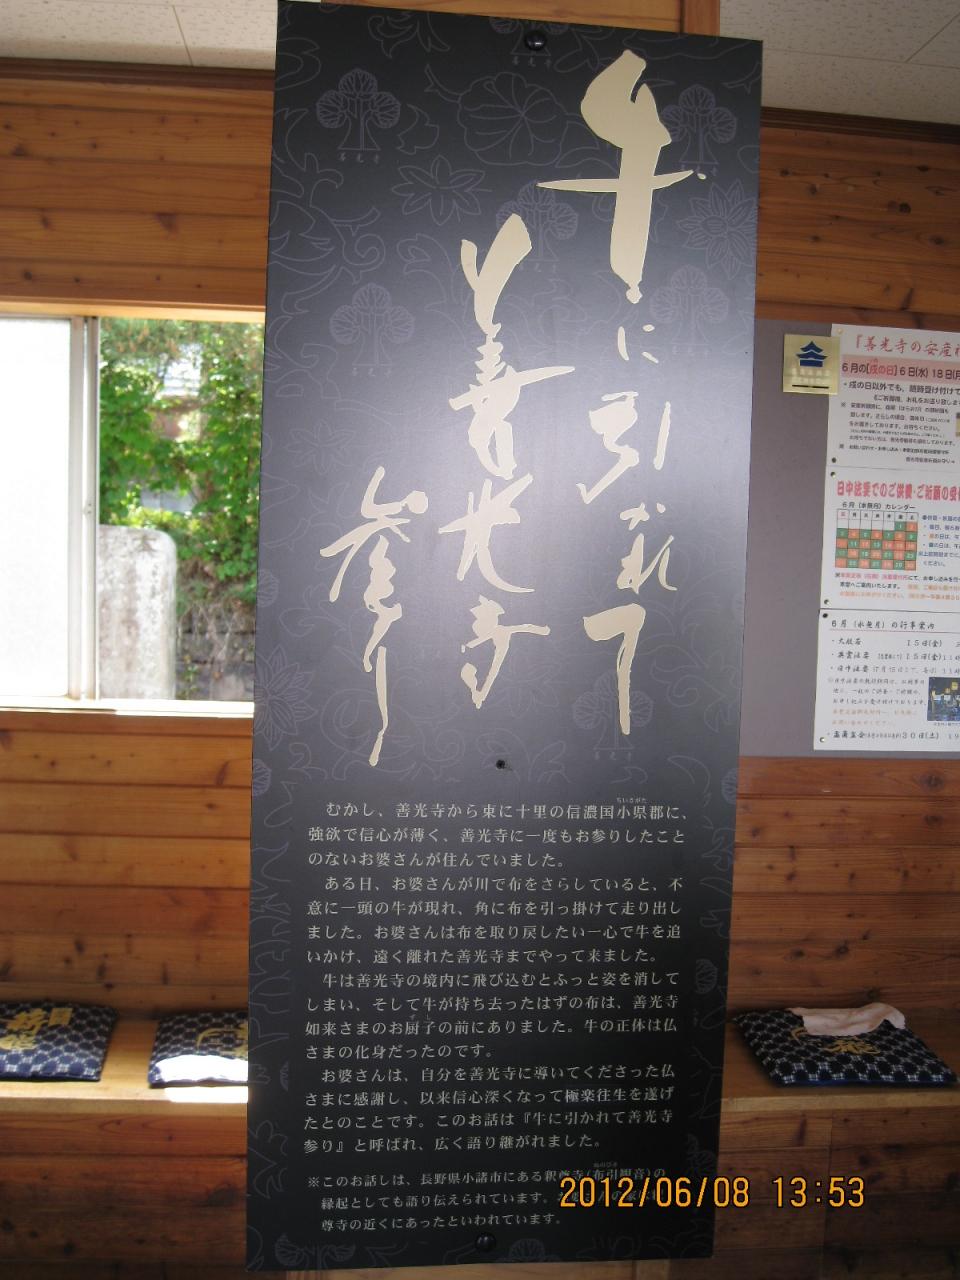 牛に引かれて
善光寺
参り
むかし、善光寺から東に十里の信濃国小県郡に、
ちいさがた
強欲で信心が薄く、善光寺に一度もお参りしたこと
のないお婆さんが住んでいました。
ある日、お婆さんが川で布をさらしていると、不
意に一頭の牛が現れ、角に布を引っ掛けて走り出し
ました。お婆さんは布を取り戻したい一心で牛を追
いかけ、遠く離れた善光寺までやって来ました。
牛は善光寺の境内に飛び込むとふっと姿を消して
しまい、そして牛が持ち去ったはずの布は、善光寺
如来さまのお厨子の前にありました。牛の正体は仏
ずし
さまの化身だったのです。
お婆さんは、自分を善光寺に導いてくださった仏
さまに感謝し、以来信心深くなって極楽往生を遂げ
たとのことです。このお話は『牛に引かれて善光寺
参り』と呼ばれ、広く語り継がれました。
※このお話しは、長野県小諸市にある釈尊寺(布引観音)の
ぬのびき
縁起としても語り伝えられています。
尊寺の近くにあったといわれています。
2012/06/08 13:53
『善光寺の安産祈
6月の[戌の日] 6日(水) 18日(月
・戌の日以外でも、随時受け付けて
日中法要でのご供養・ご祈願の受
6月(水無月)カレンダー
6月(水無月)の行事案内
・大般若 15日(金)
15日(金)11時
・盂蘭盆会 30日(土) 19